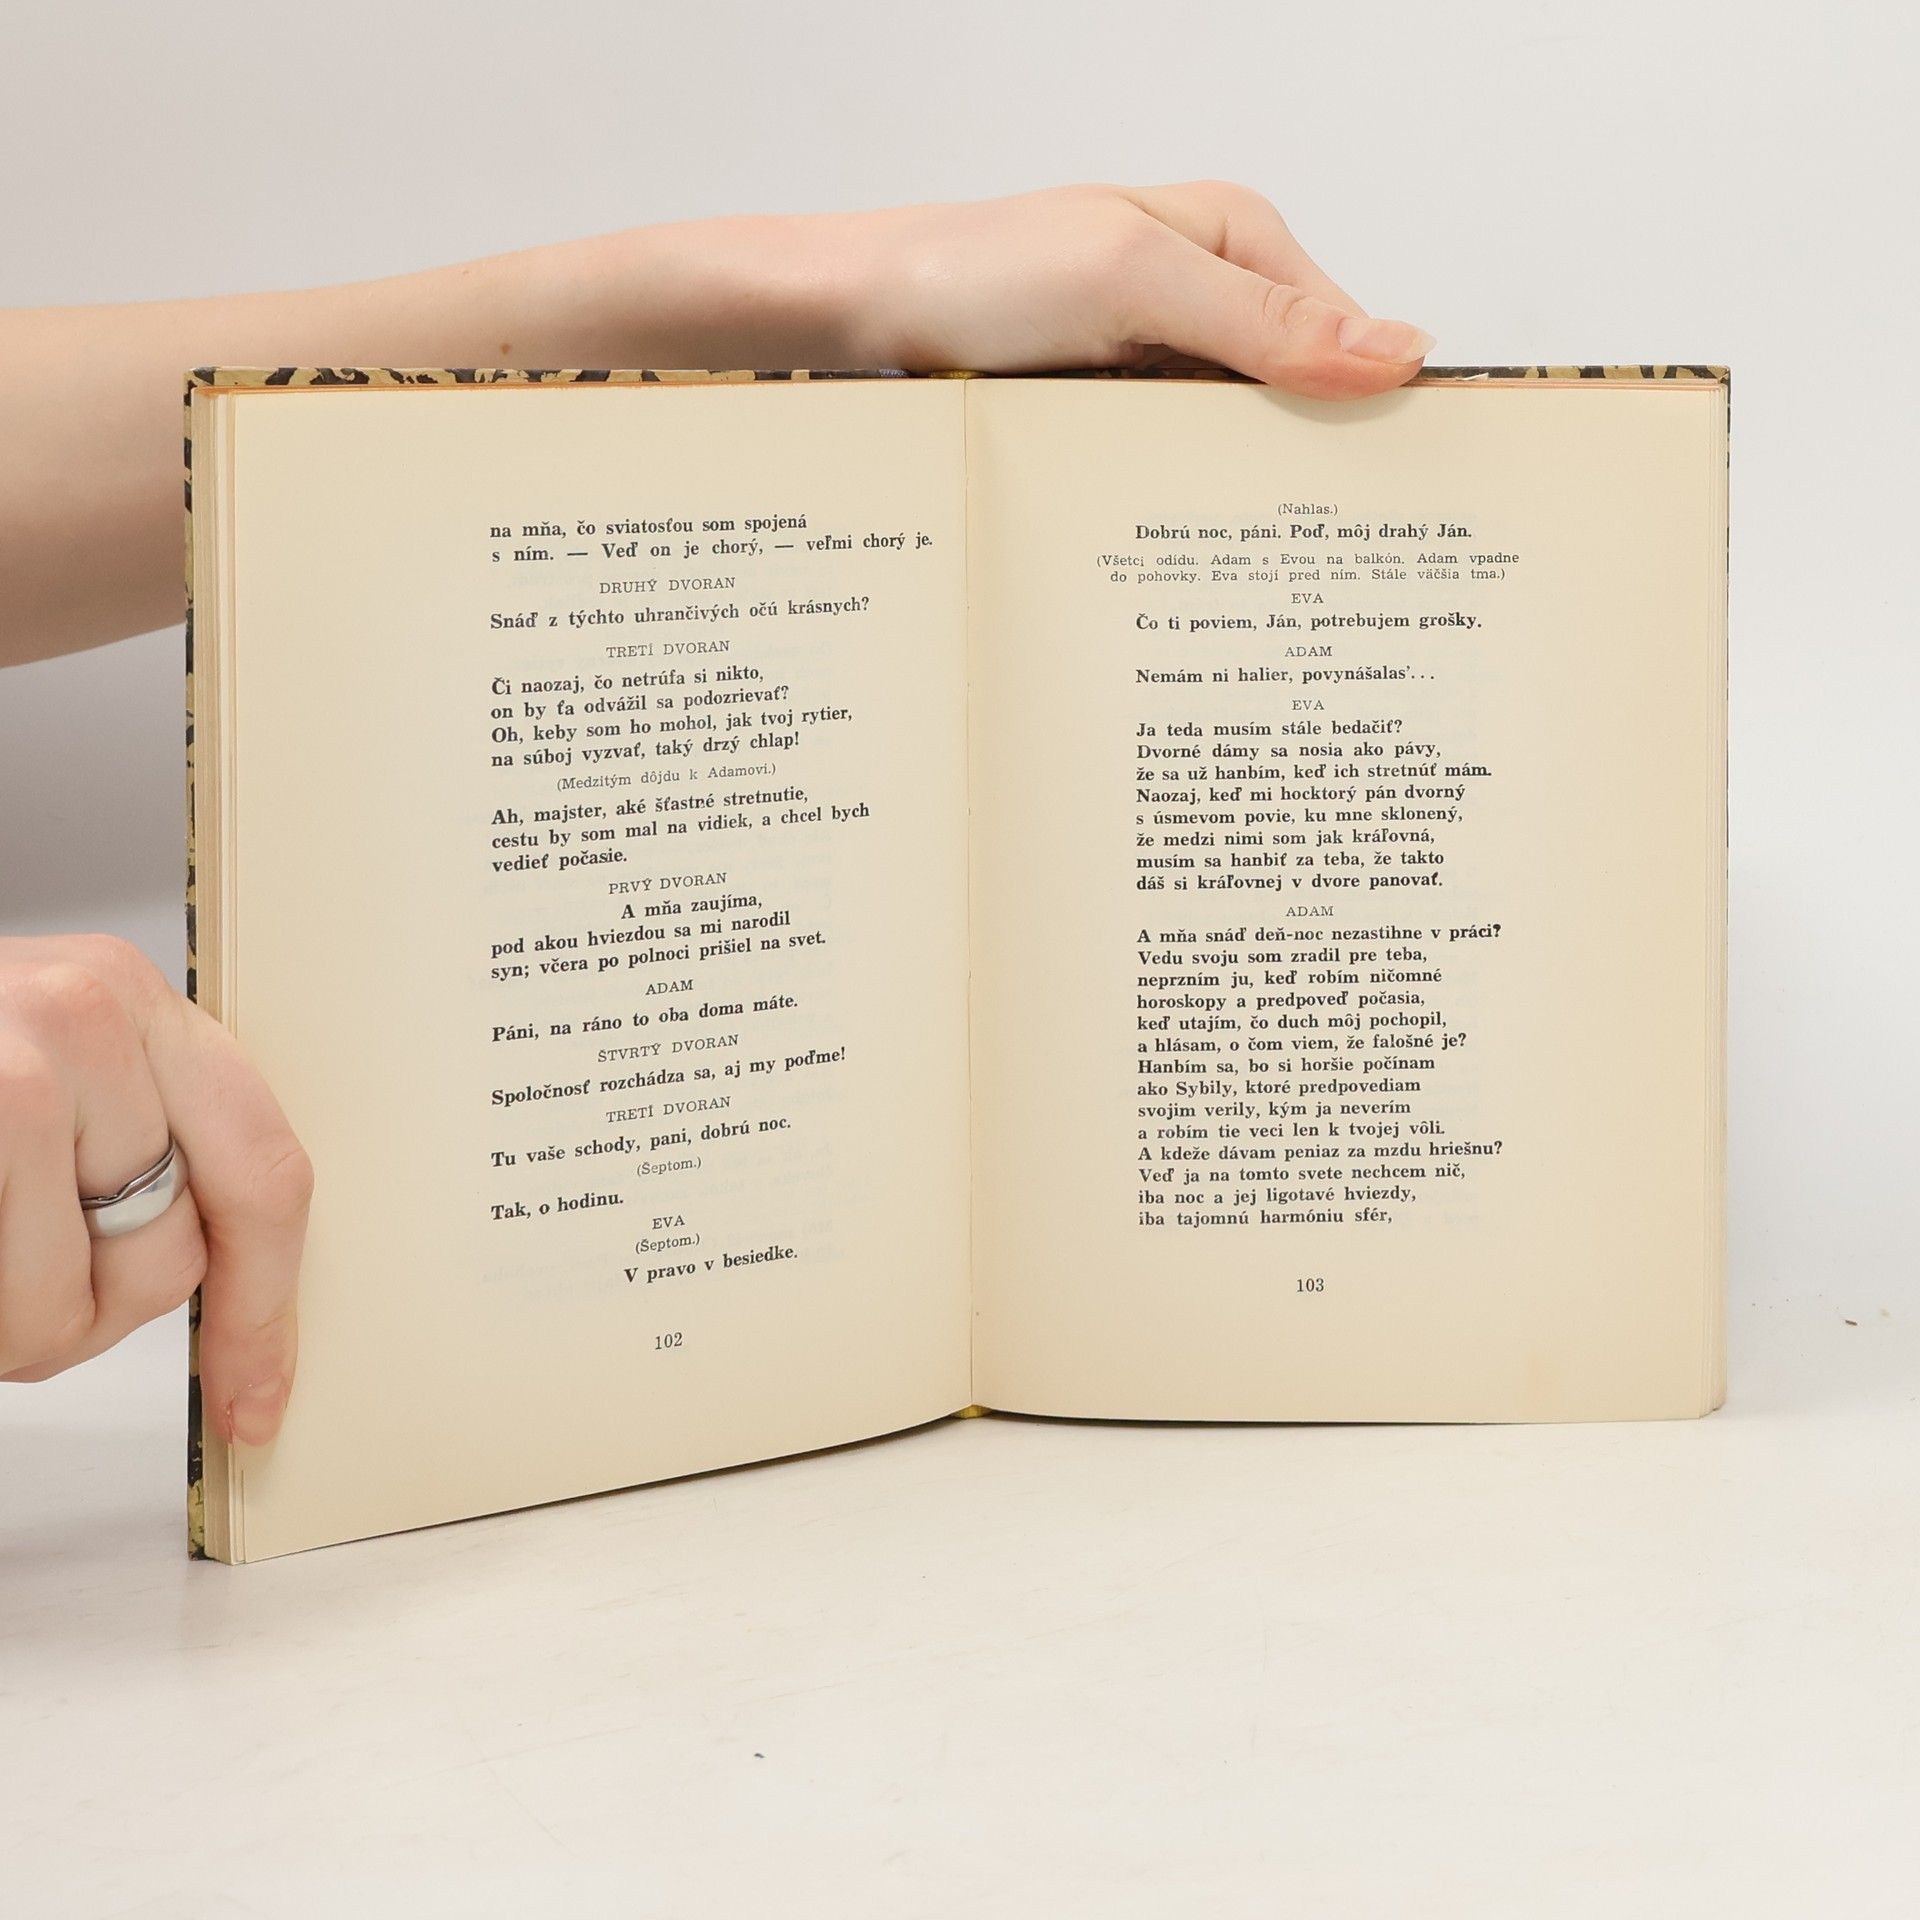 na mňa, čo sviatosťou som spojená
s ním. — Veď on je chorý, — veľmi chorý je.
DRUHÝ DVORAN
Snáď z týchto uhrančivých očú krásnych?
TRETÍ DVORAN
Či naozaj, čo netrúfa si nikto,
on by ťa odvážil sa podozrievať?
Oh, keby som ho mohol, jak tvoj rytier,
na súboj vyzvať, taký drzý chlap!
(Medzitým dôjdu k Adamovi.)
Ah, majster, aké šťastné stretnutie,
cestu by som mal na vidiek, a chcel bych
vedieť počasie.
PRVÝ DVORAN
A mňa zaujíma,
pod akou hviezdou sa mi narodil
syn; včera po polnoci prišiel na svet.
ADAM
Páni, na ráno to oba doma máte.
ŠTVRTÝ DVORAN
Spoločnosť rozchádza sa, aj my poďme!
TRETÍ DVORAN
Tu vaše schody, pani, dobrú noc.
(Šeptom.)
Tak, o hodinu.
EVA
(Šeptom.)
V pravo v besiedke.
102
(Nahlas.)
Dobrú noc, páni. Poď, môj drahý Ján.
(Všetci odídu. Adam s Evou na balkón. Adam vpadne
do pohovky. Eva stojí pred ním. Stále väčšia tma.)
EVA
Čo ti poviem, Ján, potrebujem grošky.
ADAM
Nemám ni halier, povynášalas'...
EVA
Ja teda musím stále bedačiť?
Dvorné dámy sa nosia ako pávy,
že sa už hanbím, keď ich stretnúť mám.
Naozaj, keď mi hocktorý pán dvorný
s úsmevom povie, ku mne sklonený,
že medzi nimi som jak kráľovná,
musím sa hanbiť za teba, že takto
dáš si kráľovnej v dvore panovať.
ADAM
A mňa snáď deň-noc nezastihne v práci?
Vedu svoju som zradil pre teba,
neprzním ju, keď robím ničomné
horoskopy a predpoveď počasia,
keď utajím, čo duch môj pochopil,
a hlásam, o čom viem, že falošné je?
Hanbím sa, bo si horšie počínam
ako Sybily, ktoré predpovediam
svojim verily, kým ja neverím
a robím tie veci len k tvojej vôli.
A kdeže dávam peniaz za mzdu hriešnu?
Veď ja na tomto svete nechcem nič,
iba noc a jej ligotavé hviezdy,
iba tajomnú harmóniu sfér,
103